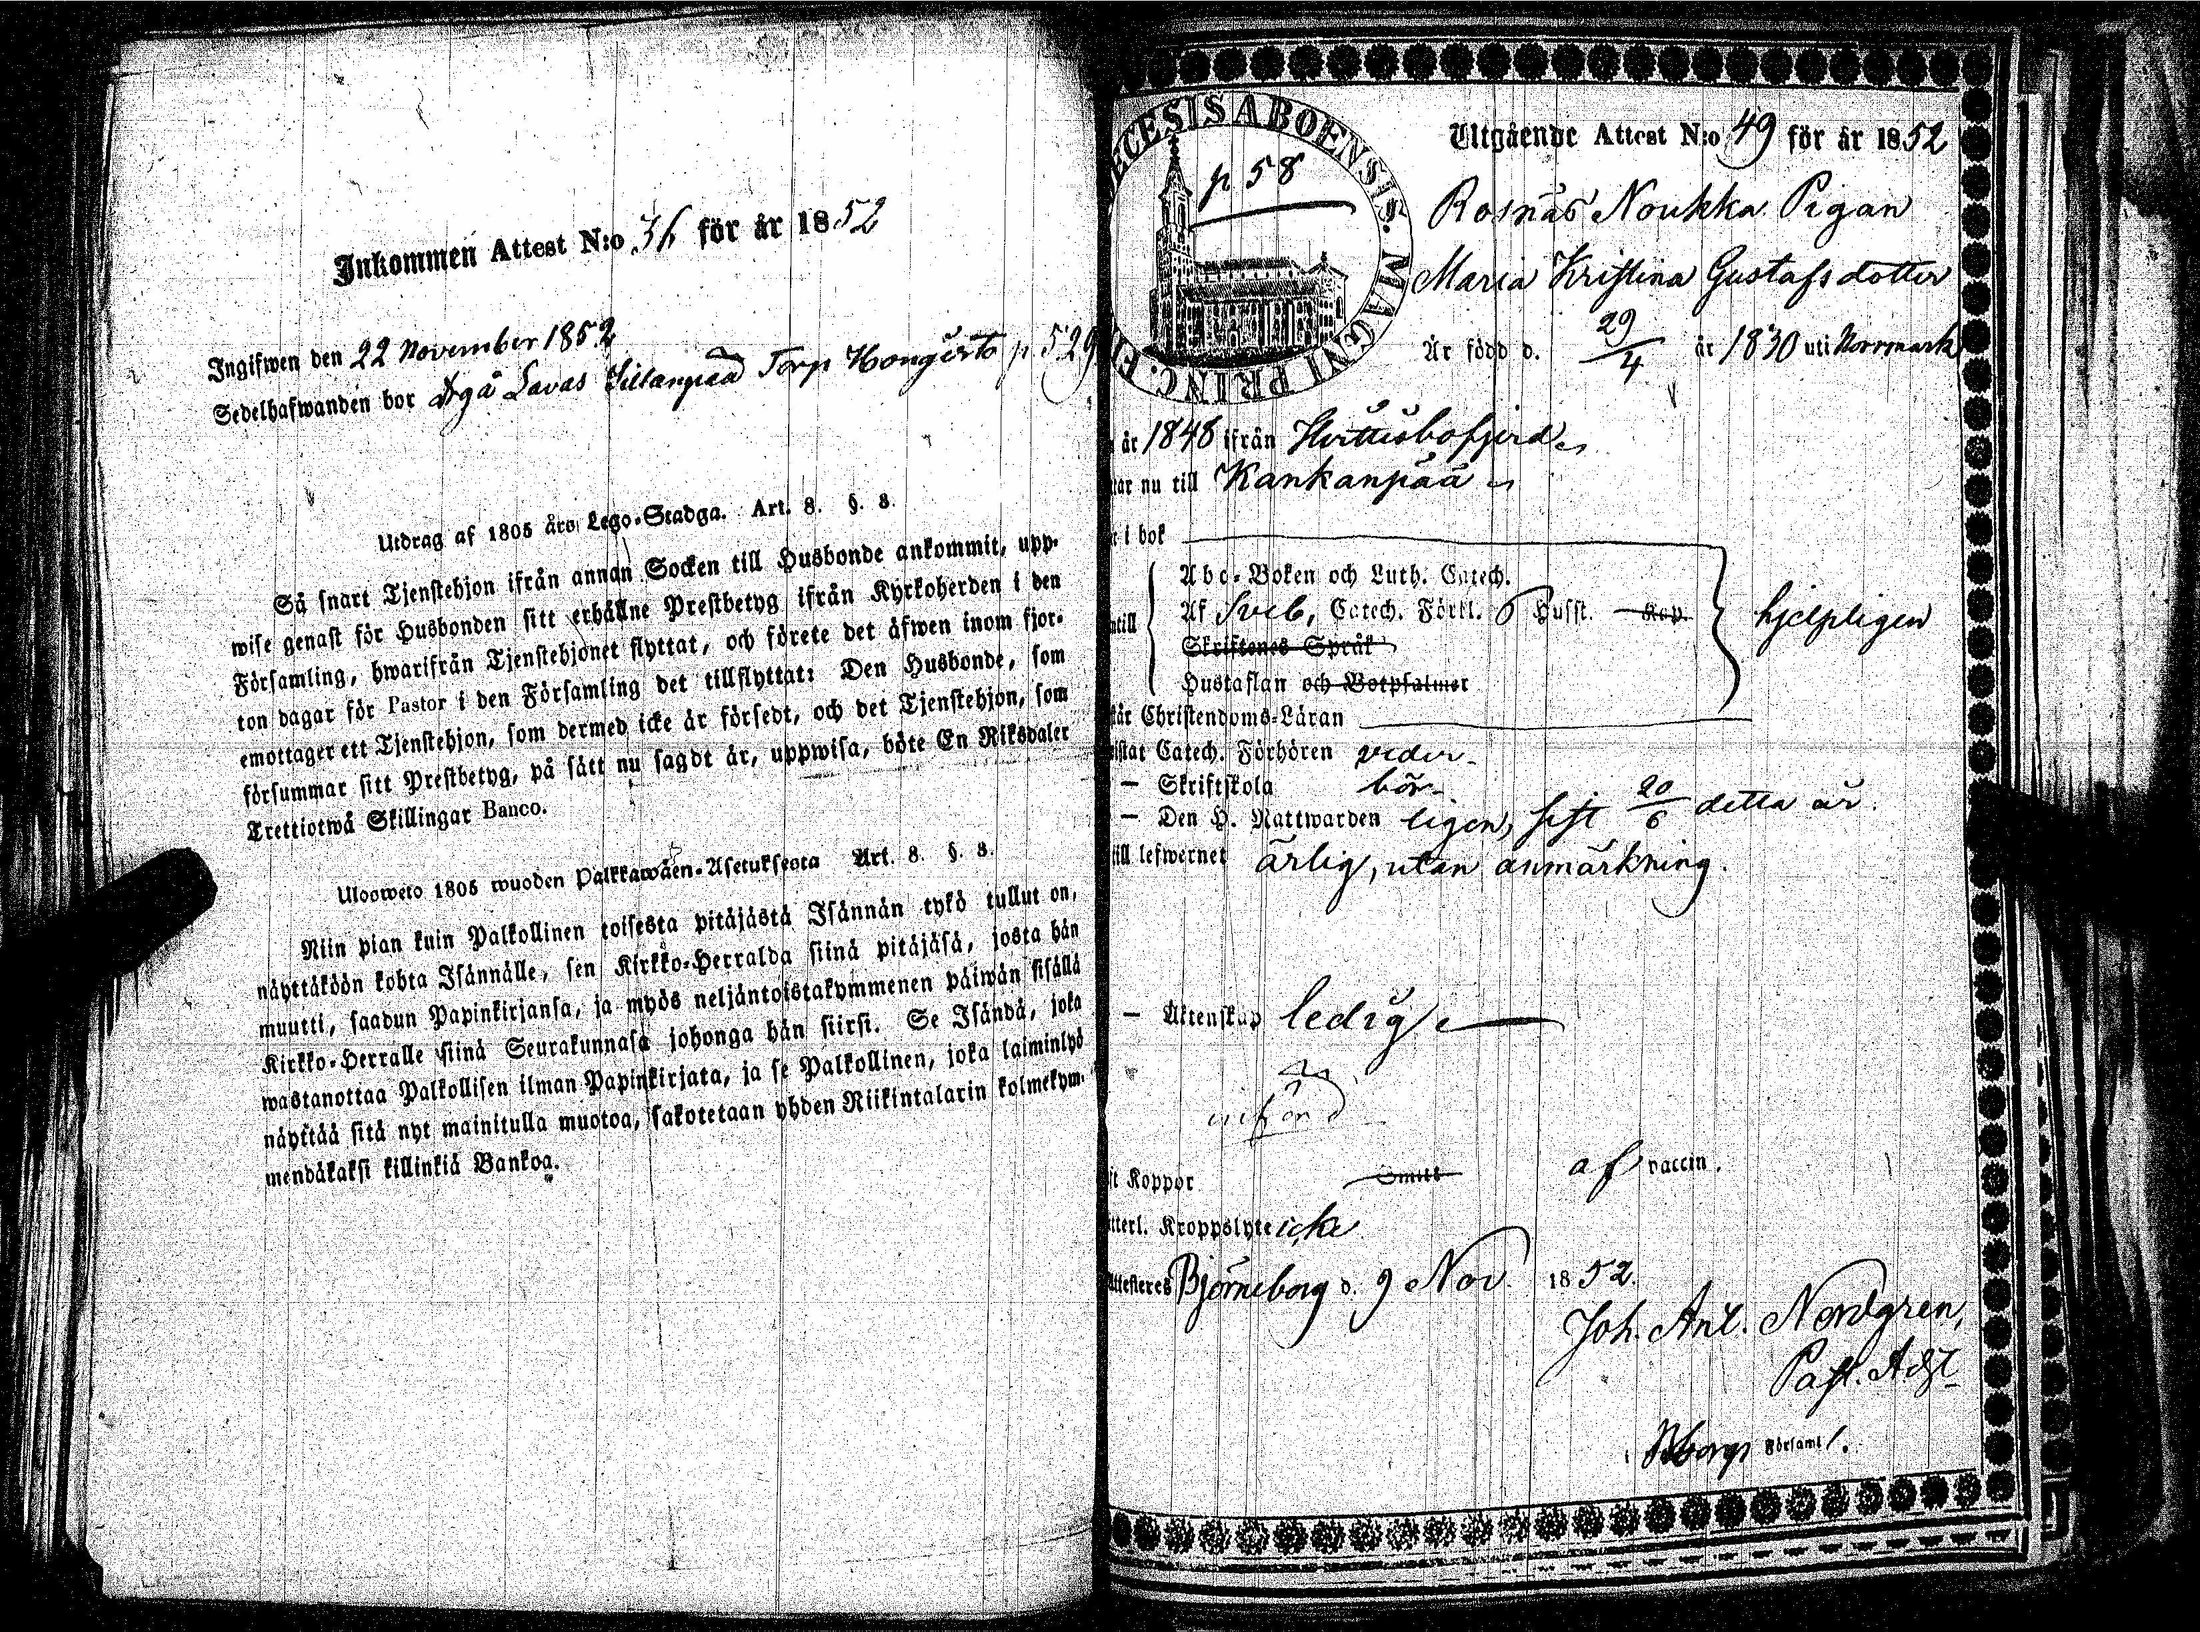 Inkommen Attest N:o 36 för år 1852
Ingifwen den 22 November 1852
Sedelhafwanden bor Ägå Lavas Sillanpää Torp Hongisto p 529
Utdrag af 1805 års Lego-Stadga. Art. 8. §. 8.
Så snart Tjenstehjon ifrån annan Socken till Husbonde ankommit, upp-
wise genast för Husbonden sitt erhållne Prestbetyg ifrån Kyrkoherden i den
Församling, hwarifrån Tjenstehjonet flyttat, och förete det äfwen inom fjor-
ton dagar för Pastor i den Församling det tillflyttat: Den Husbonde, som
emottager ett Tjenstehjon, som dermed icke är försedt, och det Tjenstehjon, som
försummar sitt Prestbetyg, på sätt nu sagdt är, uppwisa, böte En Riksdaler
Trettiotwå Skillingar Banco.
Ulosweto 1805 wuoden Palkkawäen-Asetuksesta Art. 8. §. 8.
Niin pian kuin Palkollinen toisesta pitäjästä Isännän tykö tullut on,
näyttäköön kohta Isännälle, sen Kirkko-Herralda siinä pitäjäsä, josta hän
muutti, saadun Papinkirjansa, ja myös neljäntoistakymmenen päiwän sisällä
Kirkko-Herralle siinä Seurakunnasa johonga hän siirsi. Se Isändä, joka
wastanottaa Palkollisen ilman Papinkirjata, ja se Palkollinen, joka laiminlyö
näyttää sitä nyt mainitulla muotoa, sakotetaan yhden Riikintalarin kolmekym-
mendäkaksi killinkiä Bankoa.
ECESIS ABOENSIS. MAGNI PRINC. F
p 58
Utgående Attest N:o 49 för år 1852
Rosnäs Noukka Pigan
Maria Kristina Gustafsdotter
Är född d. 29/4 år 1830 uti Norrmark
år 1848 ifrån Hvittisbofjerd
nu till Kankanpää
i bok
Abc-Boken och Luth. Catech.
Af Sveb, Catech. Förkl. 6 Husst. Kap.
Skriftenes Språk
Hustaflan och Botpsalmer
hjelpligen
Christendoms-Läran
Catech. Förhören veder-
— Skriftskola bör-
— Den H. Nattwarden ligen, sist 20/6 detta år.
till lefwernet ärlig, utan anmärkning.
— Äktenskap ledig
införd
Koppor Smitt af vaccin.
Kroppslyte icke
Attesteres Björneborg d. 9 Nov. 1852.
Joh. Ant. Nordgren,
Past. Adjt
i Bborgs Församl.